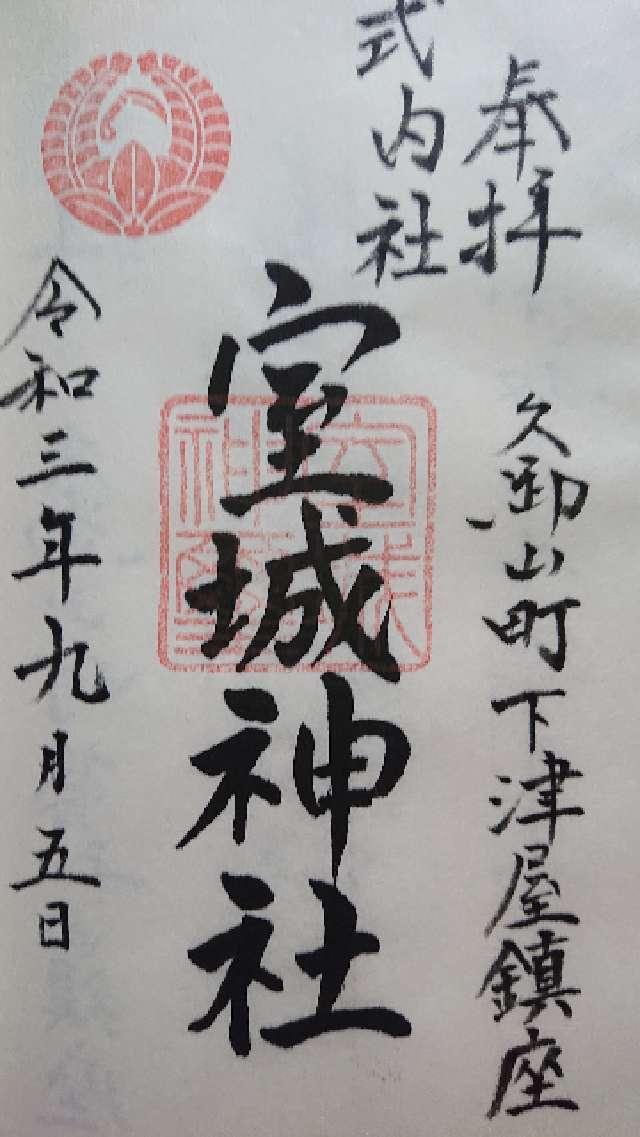 奉拝
久御山町下津屋鎮座
式内社
室城神社
令和三年九月五日